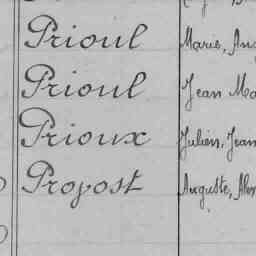 Prioul Marie, Aug
Prioul Jean Ma
Prioux Julien, Jean
Provost Auguste, Alex